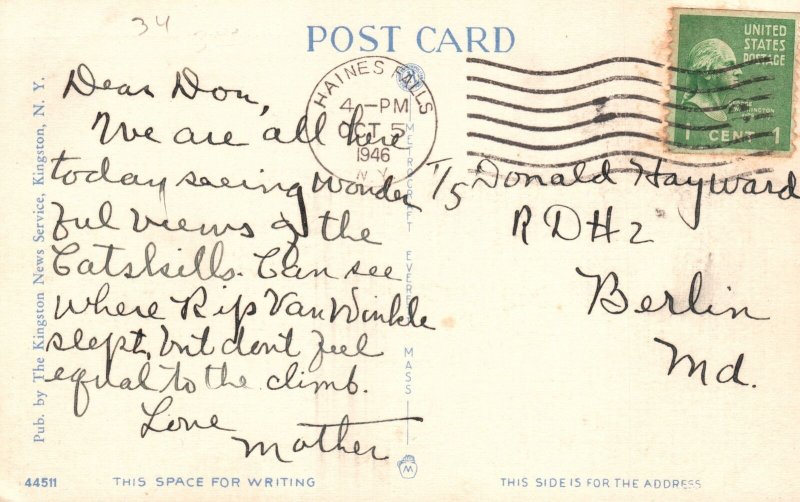 34
POST CARD
HAINES FALLS
4-PM
OCT 5
1946
N.Y.
UNITED
STATES
POSTAGE
WASHINGTON
1 CENT 1
Dear Don,
We are all here
today seeing wonder
ful views of the
Catskills. Can see
where Rip Van Winkle
slept, but don't feel
equal to the climb.
Love
Mother
T/5 Donald Hayward
RD#2
Berlin
Md.
Pub. by The Kingston News Service, Kingston, N. Y.
METROCRAFT EVERETT MASS
44511
THIS SPACE FOR WRITING
THIS SIDE IS FOR THE ADDRESS